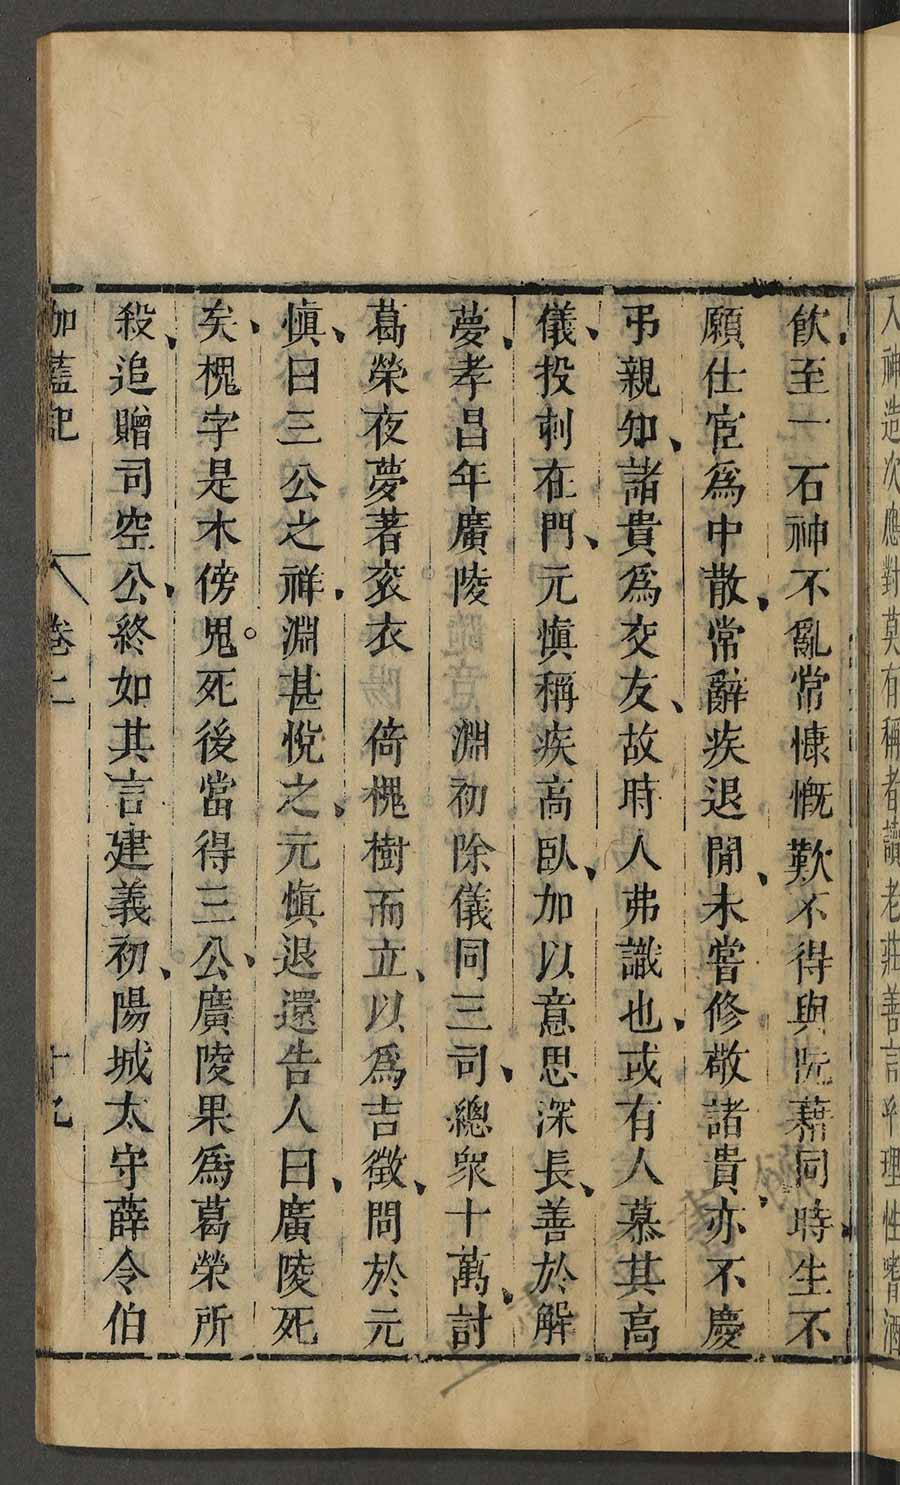 人神造次應對莫有稱者讀老莊善言乎理性嗜酒
飲至一石神不亂常慷慨歎不得與阮藉同時生不
願仕宦爲中散常辭疾退閒未嘗修敬諸貴亦不慶
弔親知諸貴爲交友故時人弗識也或有人慕其高
儀投刺在門元慎稱疾高臥加以意思深長善於解
夢孝昌年廣陵 淵初除儀同三司總衆十萬討
葛榮夜夢著衮衣 倚槐樹而立以爲吉徵問於元
慎曰三公之祥淵甚悅之元慎退還告人曰廣陵死
矣槐字是木傍鬼死後當得三公廣陵果爲葛榮所
殺追贈司空公終如其言建義初陽城太守薛令伯
伽藍記 卷二 十九